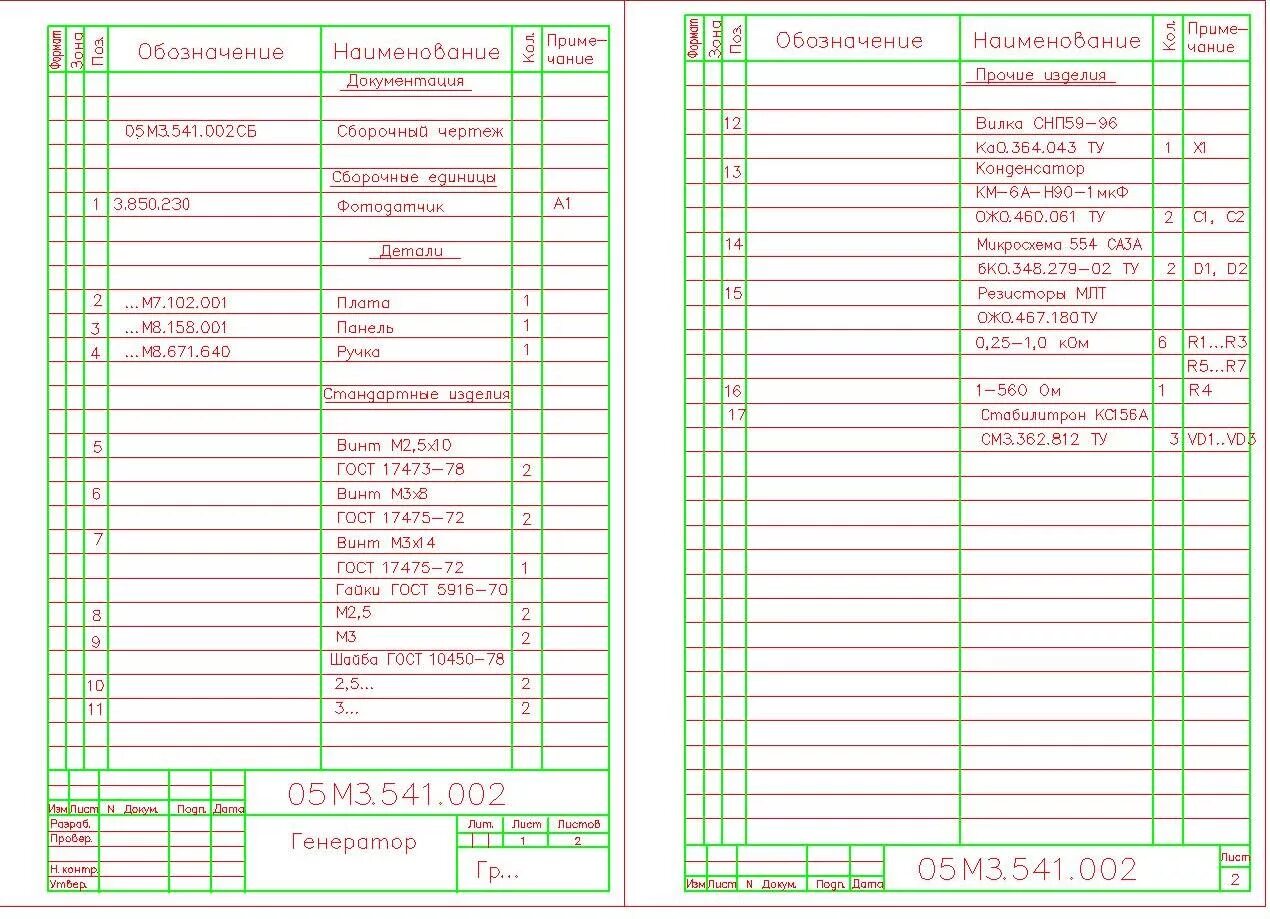 Формат Зона Поз. Обозначение Наименование Кол. Приме-
чание
Документация
05М3.541.002СБ Сборочный чертеж
Сборочные единицы
1 3.850.230 Фотодатчик А1
Детали
2 ...М7.102.001 Плата 1
3 ...М8.158.001 Панель 1
4 ...М8.671.640 Ручка 1
Стандартные изделия
5 Винт М2,5х10
ГОСТ 17473-78 2
6 Винт М3х8
ГОСТ 17475-72 2
7 Винт М3х14
ГОСТ 17475-72 1
Гайки ГОСТ 5916-70
8 М2,5 2
9 М3 2
Шайба ГОСТ 10450-78
10 2,5... 2
11 3... 2
05М3.541.002
Изм Лист N Докум. Подп. Дата
Разраб.
Провер.
Н. контр.
Утвер.
Генератор
Лит. Лист Листов
1 2
Гр...
Формат Зона Поз. Обозначение Наименование Кол. Приме-
чание
Прочие изделия
12 Вилка СНП59-96
КаО.364.043 ТУ 1 X1
13 Конденсатор
КМ-6А-Н90-1мкФ
ОЖО.460.061 ТУ 2 С1, С2
14 Микросхема 554 СА3А
бКО.348.279-02 ТУ 2 D1, D2
15 Резисторы МЛТ
ОЖО.467.180ТУ
0,25-1,0 кОм 6 R1...R3
R5...R7
16 1-560 Ом 1 R4
17 Стабилитрон КС156А
СМ3.362.812 ТУ 3 VD1..VD3
Изм Лист N Докум. Подп. Дата
05М3.541.002
Лист
2